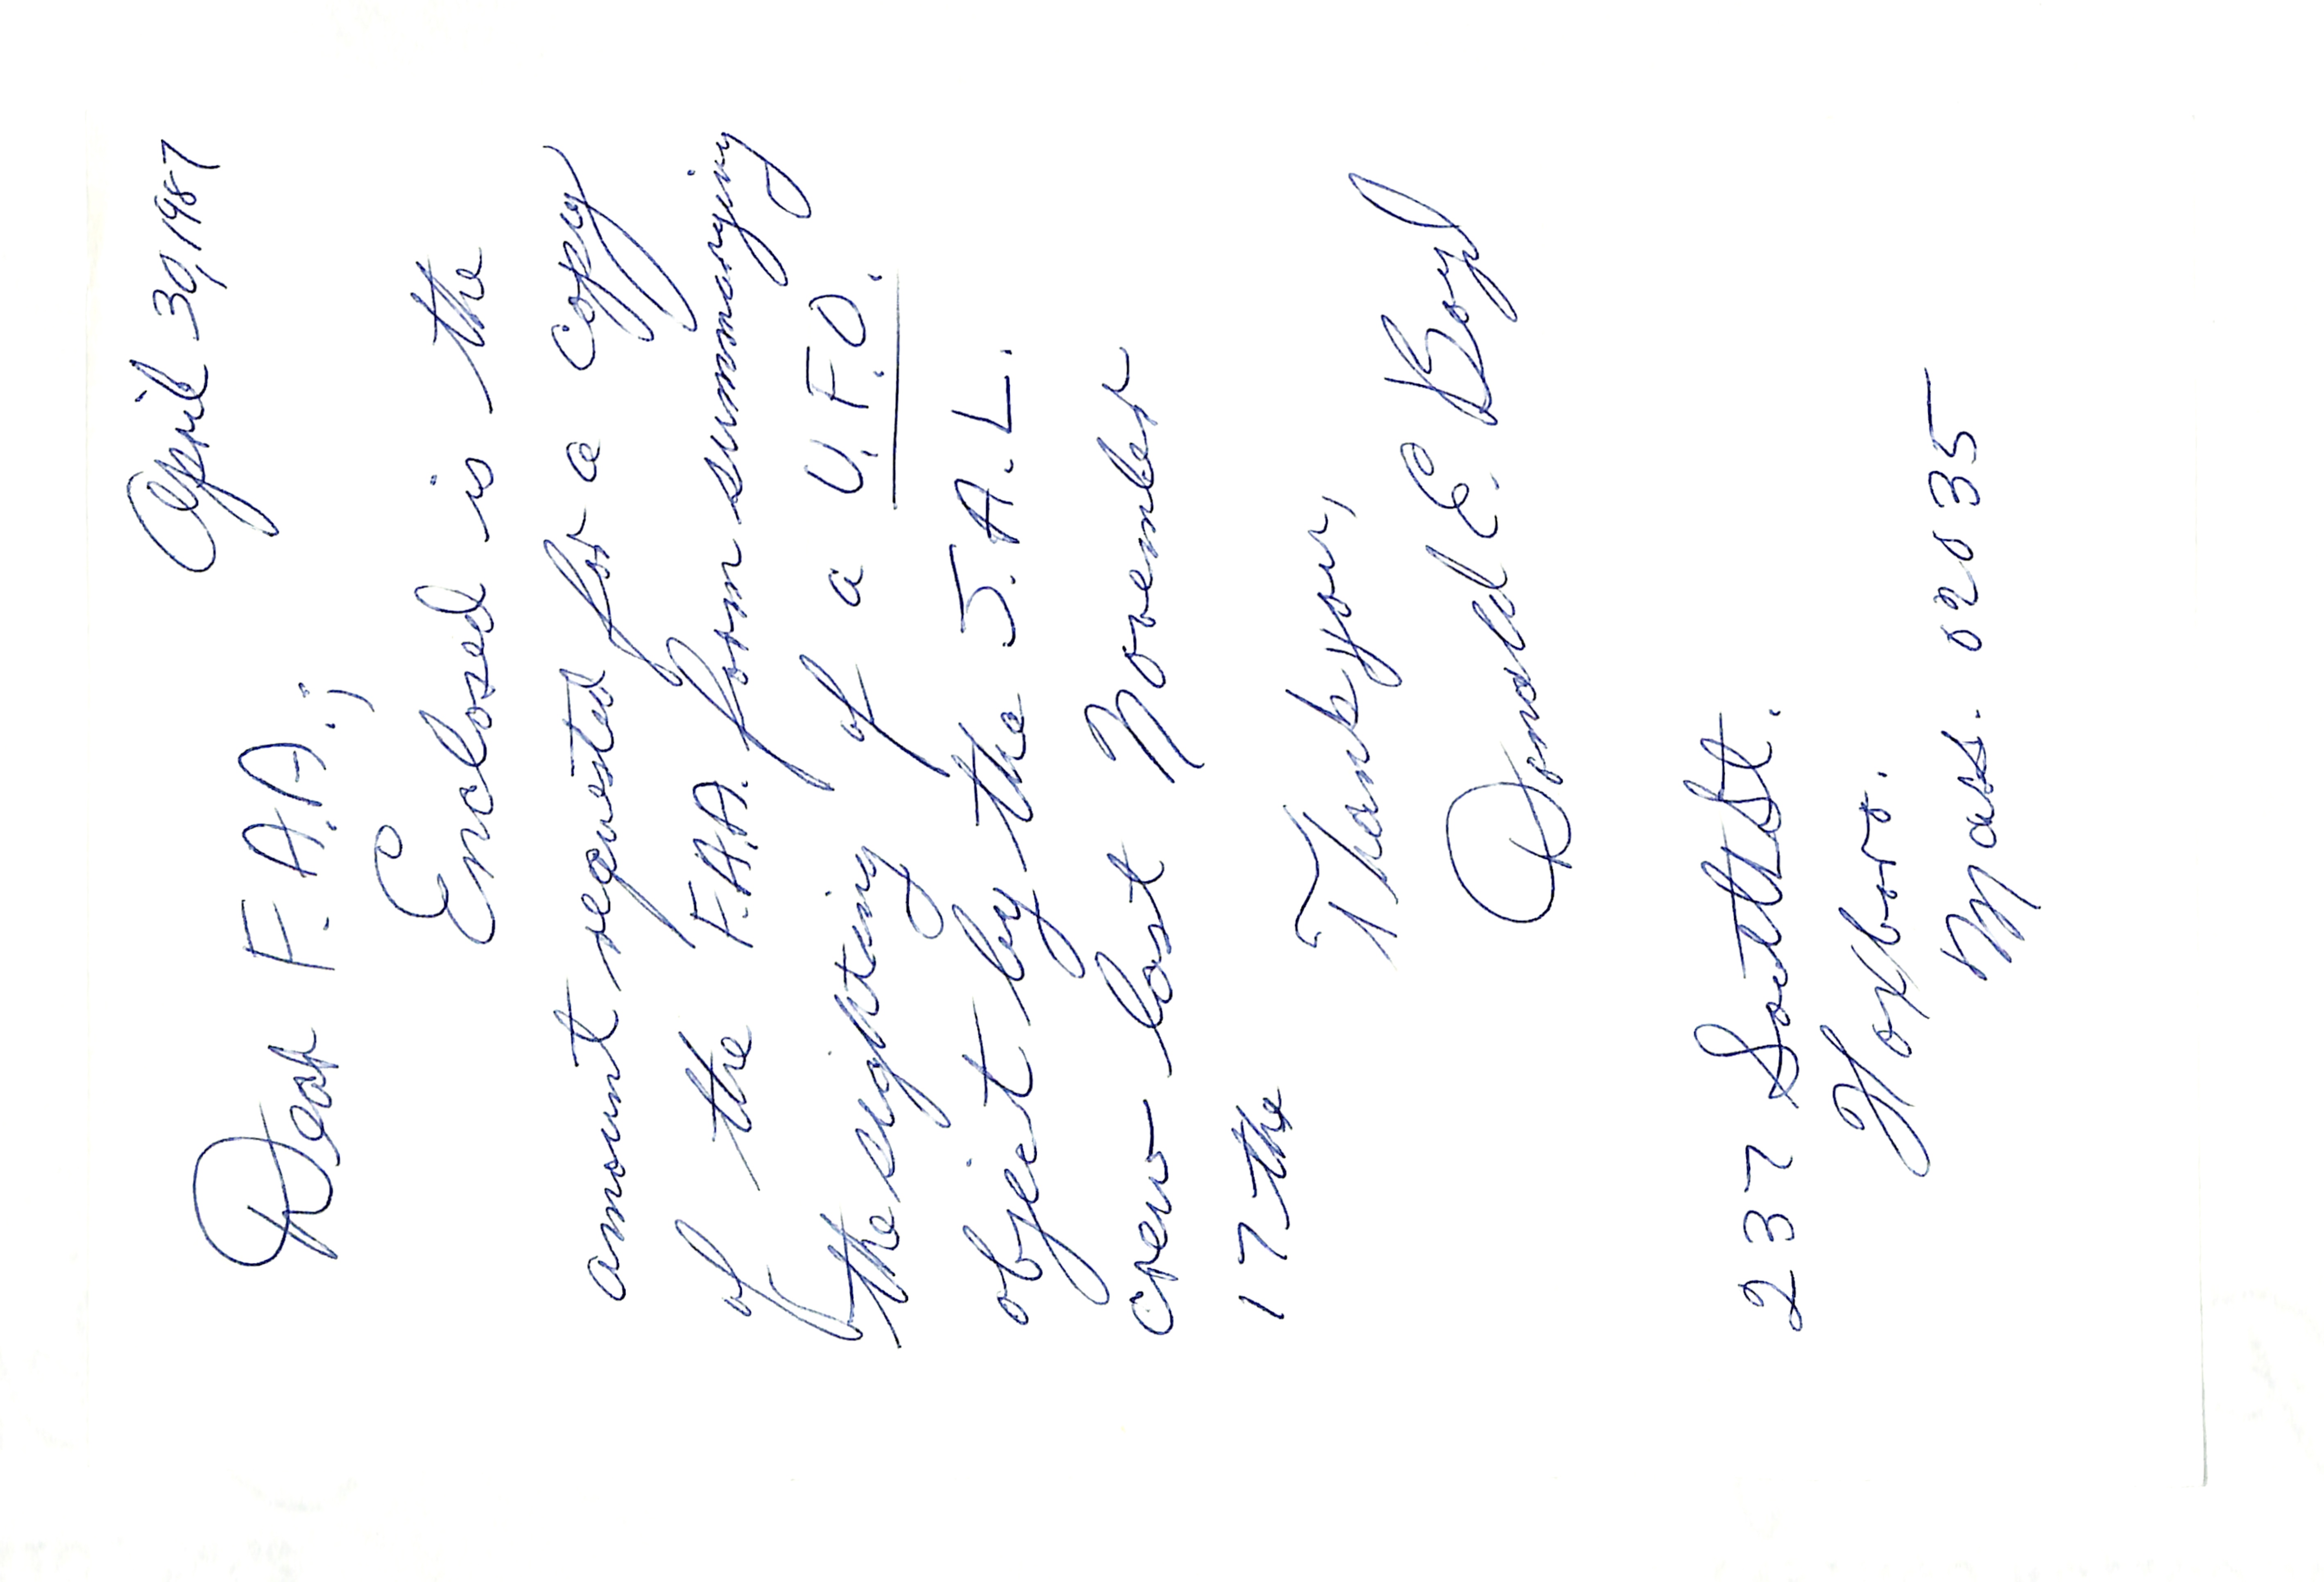 April 30, 1987
Dear F.A.A.;
Enclosed is the
amount requested for a copy
of the F.A.A. form summarying
of the sighting of a U.F.O.
object by the J.A.L.
crew last November
17 the
Thank you,
Donald E. Boyd
237 South St.
Foxboro.
Mass. 02035